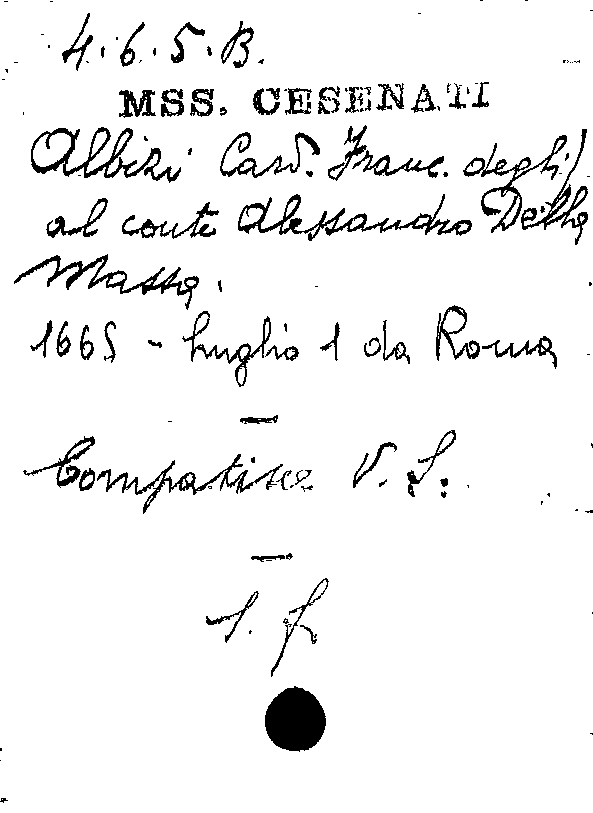 4.6.5.B.
MSS. CESENATI
Albizi Card. Franc. degli)
al conte Alessandro Della
Massa.
1665 - Luglio 1 da Roma
—
Compatisce V. S.
—
1. f